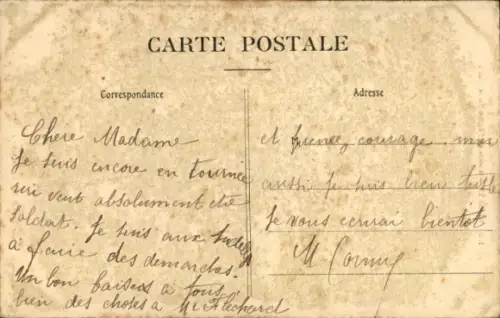 CARTE POSTALE
Correspondance
Adresse
Chere Madame
Je suis encore en tournée
veut absolument etre
soldat. Je suis aux
à faire des demarches.
Un bon baisers a tous
bien des choses a Mr Flechard
et prenez courage moi
aussi je suis bien
Je vous ecrirai bientot
M Cornu